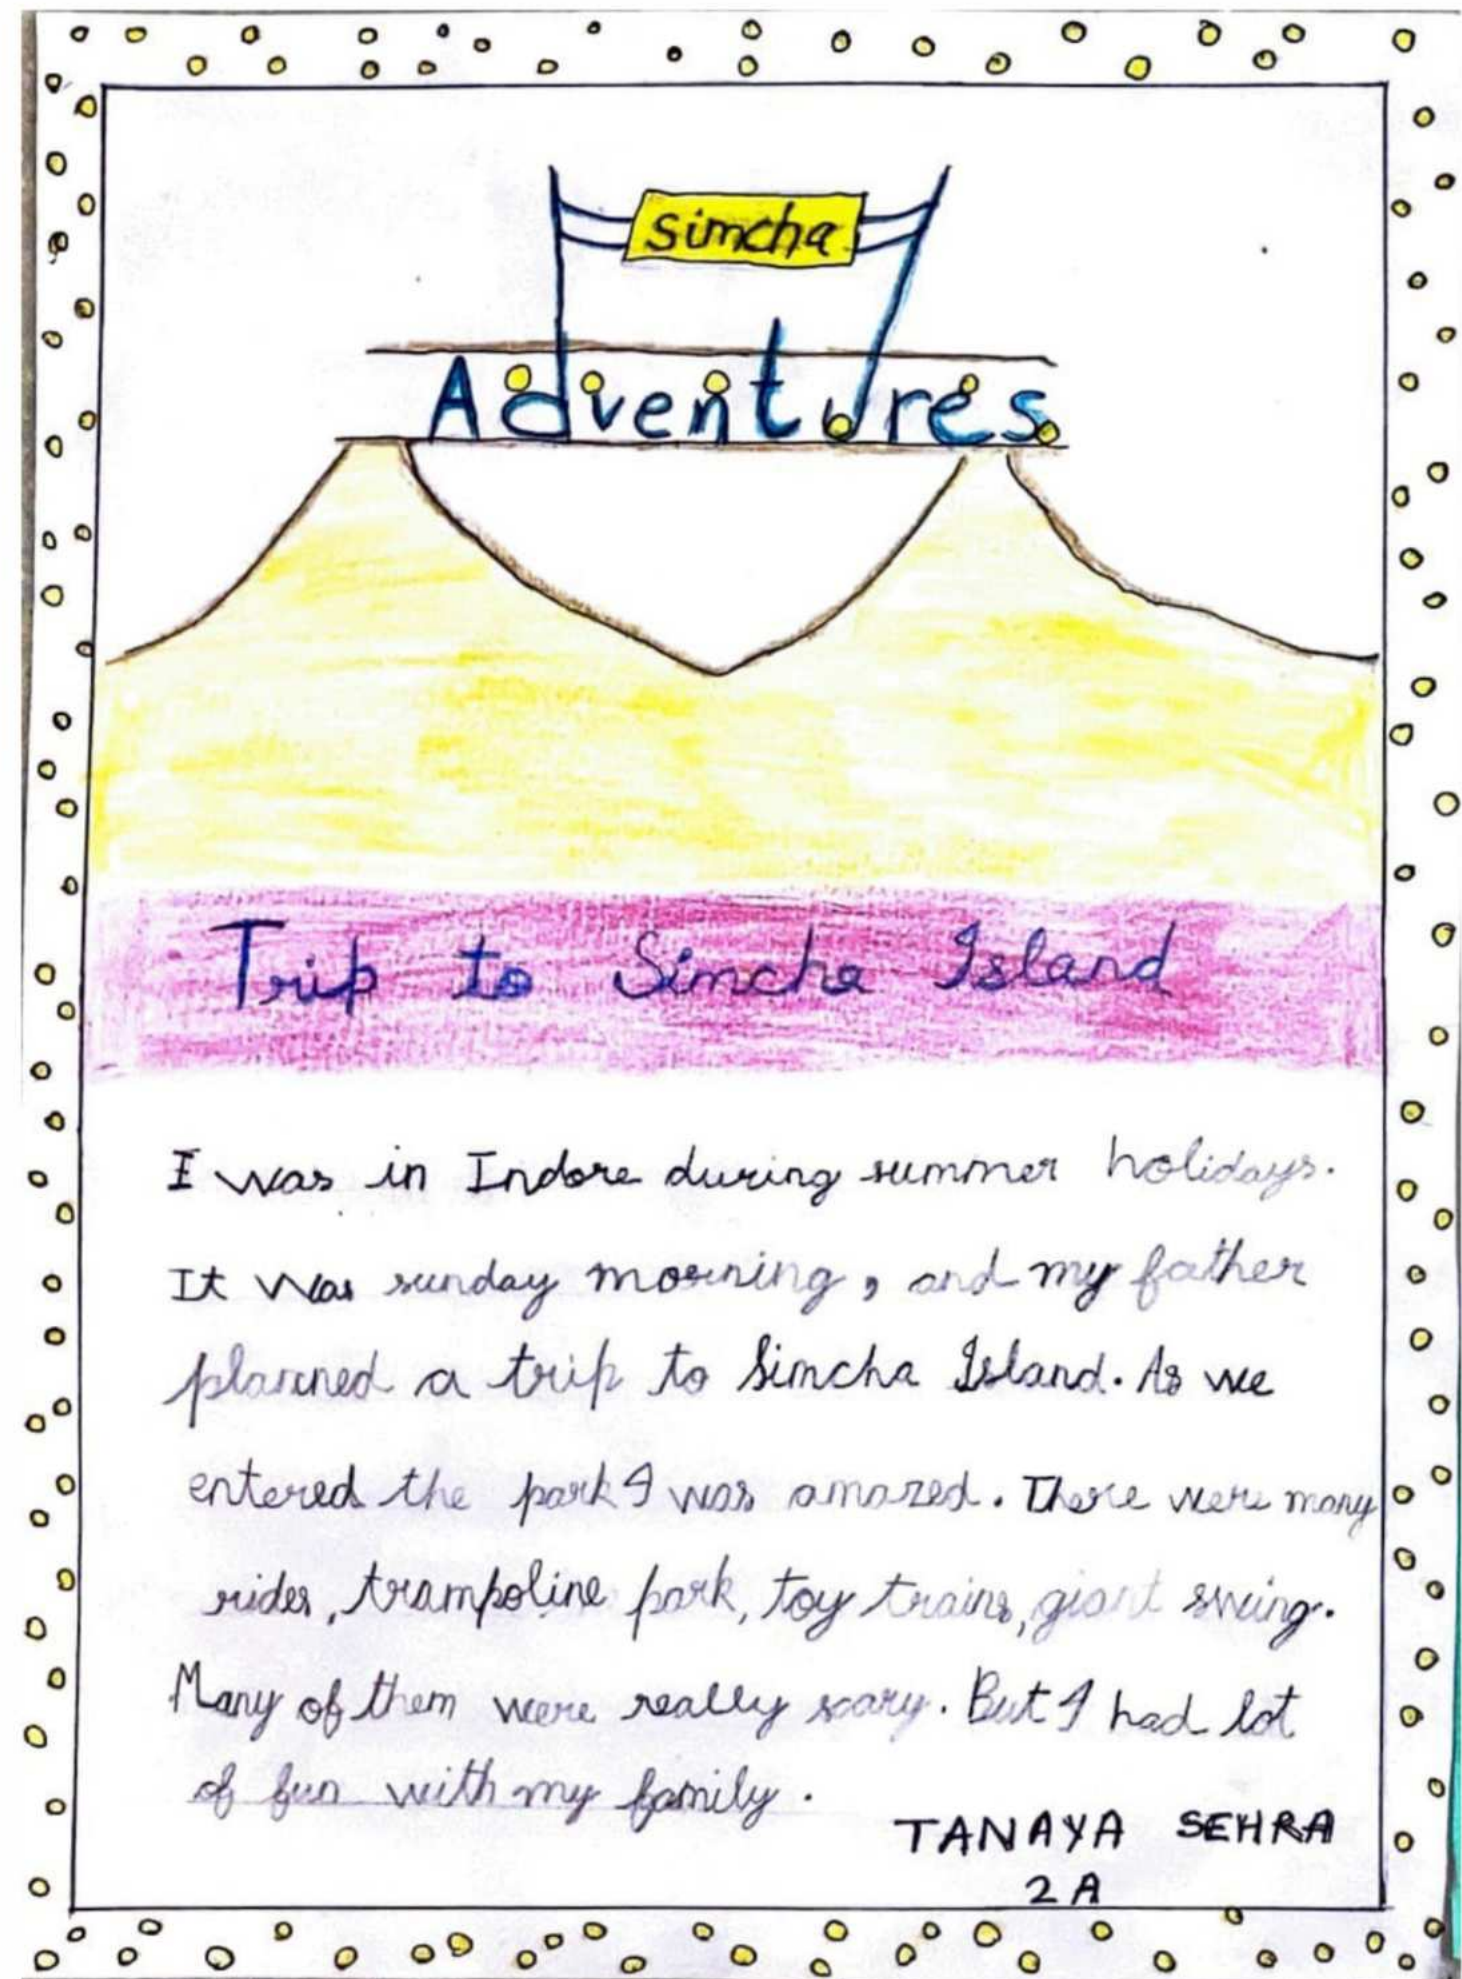 simcha
Adventures
Trip to Simcha Island
I was in Indore during summer holidays.
It was sunday morning, and my father
planned a trip to Simcha Island. As we
entered the park I was amazed. There were many
rides, trampoline park, toy trains, giant swing.
Many of them were really scary. But I had lot
of fun with my family.
TANAYA SEHRA
2A